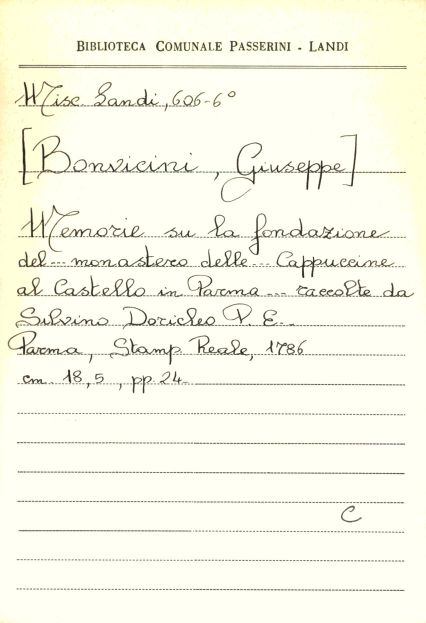 BIBLIOTECA COMUNALE PASSERINI - LANDI
Misc. Landi, 606-6°
[Bonvicini, Giuseppe]
Memorie su la fondazione
del... monastero delle... Cappuccine
al Castello in Parma... raccolte da
Silvino Doricleo P. E.
Parma, Stamp. Reale, 1786
cm. 18,5, pp. 24.
C